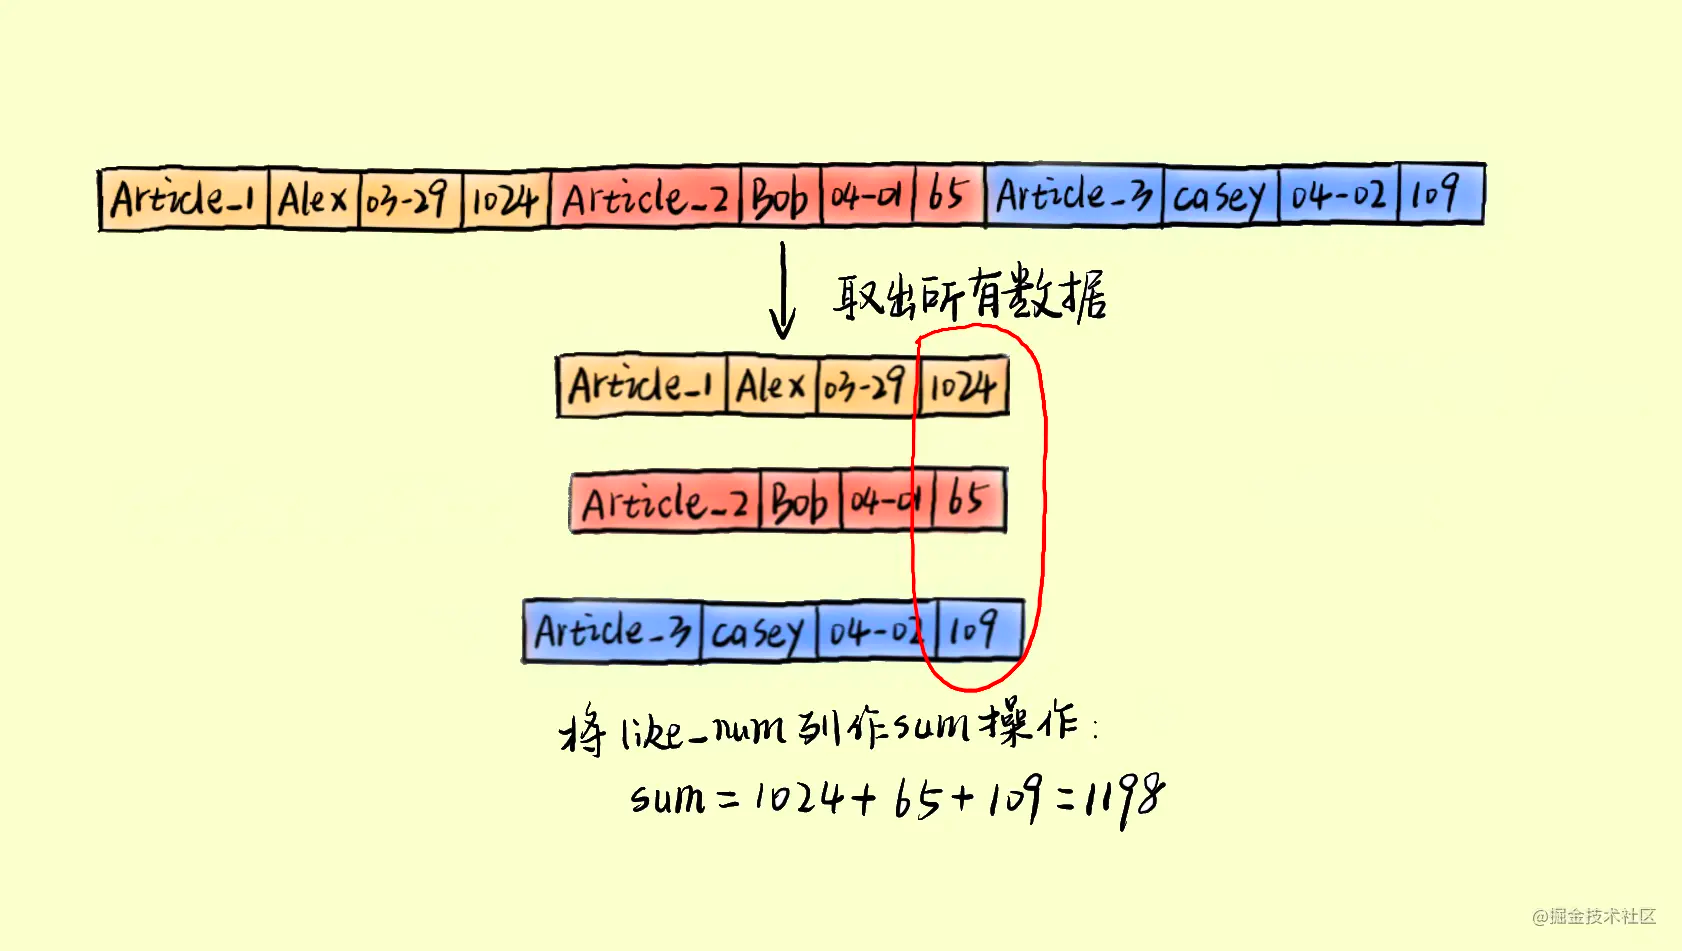 Article_1 Alex 03-29 1024 Article_2 Bob 04-01 65 Article_3 casey 04-02 109
取出所有数据
Article_1 Alex 03-29 1024
Article_2 Bob 04-01 65
Article_3 casey 04-02 109
将like_num列作sum操作:
sum=1024+65+109=1198
@掘金技术社区